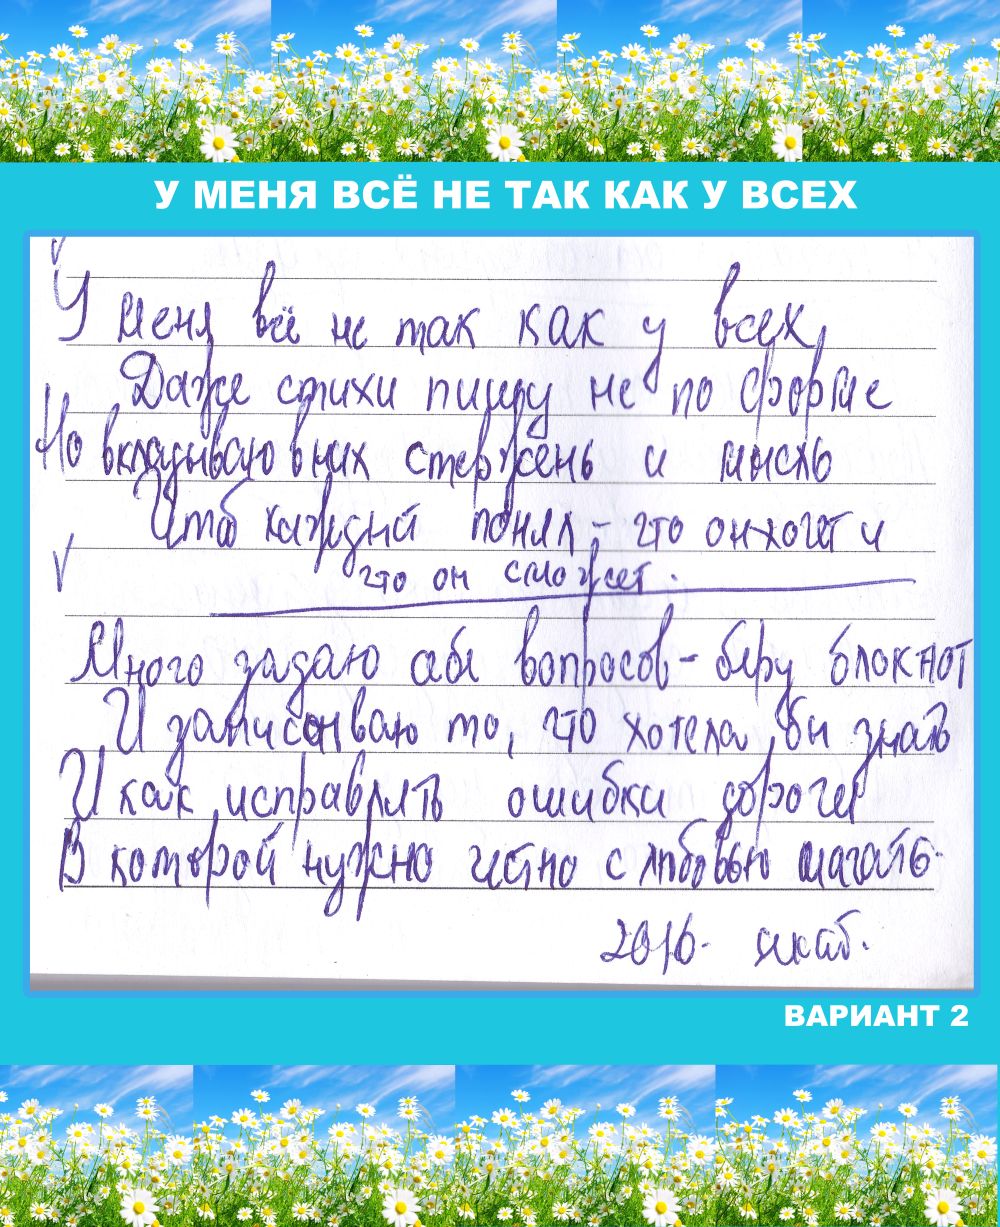 У МЕНЯ ВСЁ НЕ ТАК КАК У ВСЕХ
У меня всё не так как у всех,
Даже стихи пишу не по форме
Но вкладываю в них стержень и мысль
Чтоб каждый понял, – что он хочет и
что он сможет.
Много задаю себе вопросов – беру блокнот
И записываю то, что хотела бы знать
И как исправлять ошибки дороги
В которой нужно честно с любовью шагать.
2016.
ВАРИАНТ 2